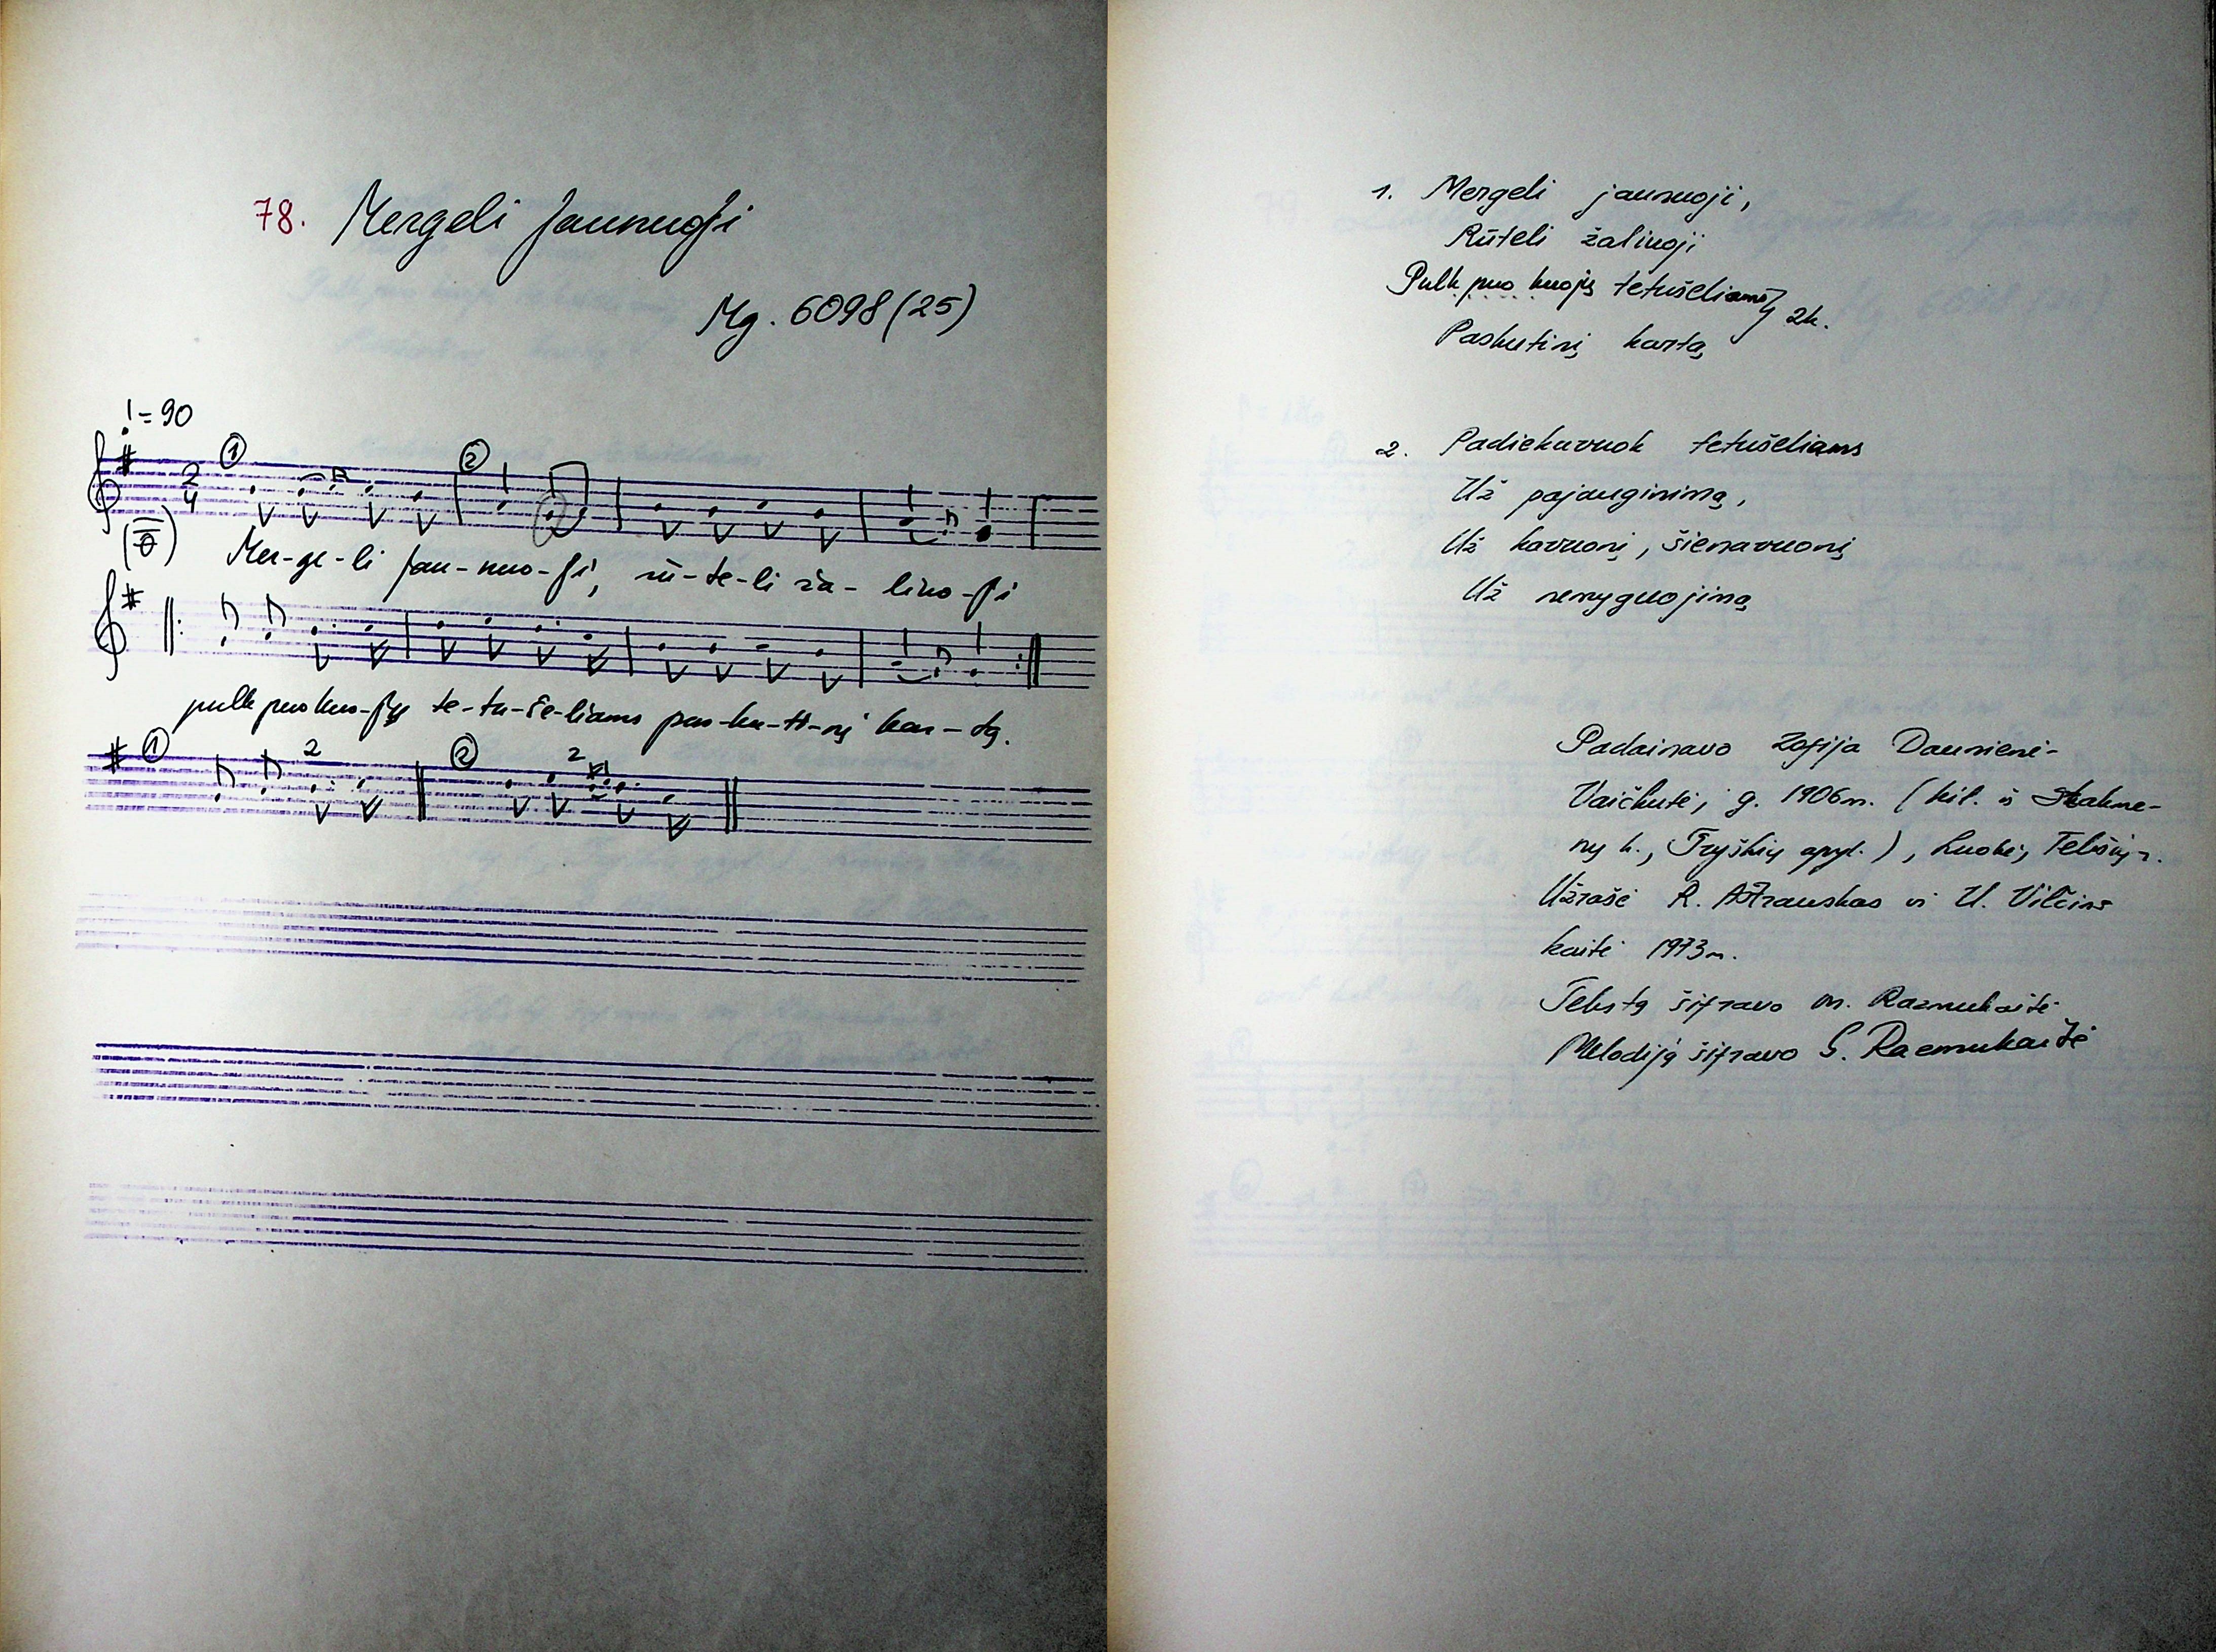 78. Mergeli jaunuoji
Mg. 6098 (25)
♩=90
① ②
2
4
Mer-ge-li jau-nuo-ji, rū-te-li ža-lino-ji
pulk puo kuo-jų te-tu-še-liams pas-ku-ti-nį kar-tą.
① 2 ② 2
1. Mergeli jaunuoji,
Rūteli žalinoji
Pulk puo kuojų tetušeliams
2k.
Paskutinį kartą
2. Padiekavuok tetušeliams
Už pajauginimą,
Už kavuonį, šienavuonį
Už
Padainavo Zofija Daunienė-
Vaičkutė, g. 1906 m. (kil. iš
nų k., Tryškių apyl.), Luokė, Telšių r.
Užrašė R. Astrauskas ir U. Vilčins
kaitė 1973 m.
Tekstą šifravo M. Razmukaitė
Melodiją šifravo S. Razmukaitė